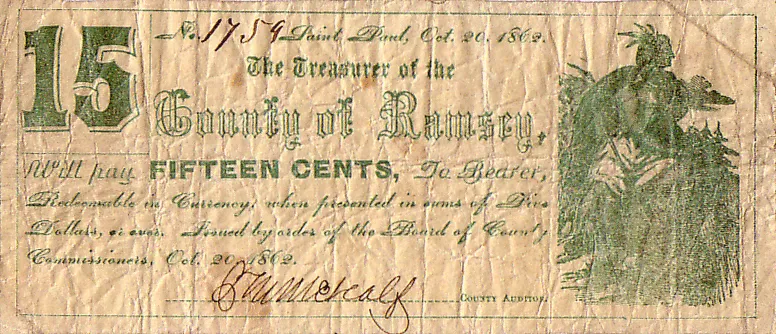 15
No. 1759 Saint Paul, Oct. 20, 1862.
The Treasurer of the
County of Ramsey,
Will pay FIFTEEN CENTS, To Bearer,
Redeemable in Currency, when presented in sums of Five
Dollars, or over. Issued by order of the Board of County
Commissioners, Oct. 20, 1862.
Metcalf COUNTY AUDITOR.